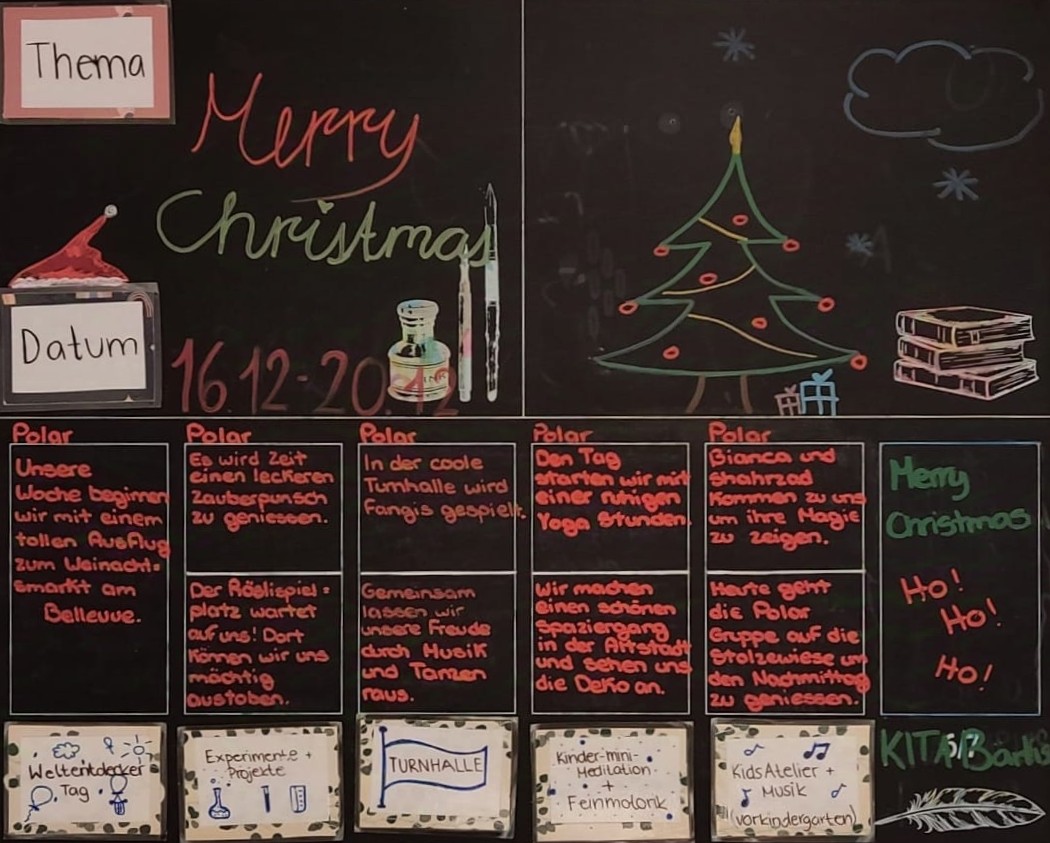 Thema
Merry
Christmas
Datum
16.12-20.12
INK
Polar
Unsere
Woche beginnen
wir mit einem
tollen Ausflug
zum Weinacht=
smarkt am
Bellevue.
Polar
Es wird Zeit
einen leckeren
Zauberpunsch
zu geniessen.
Der Röslispiel=
platz wartet
auf uns! Dort
können wir uns
mächtig
austoben.
Polar
In der coole
Turnhalle wird
Fangis gespielt.
Gemeinsam
lassen wir
unsere Freude
durch Musik
und Tanzen
raus.
Polar
Den Tag
starten wir mit
einer ruhigen
Yoga Stunden.
Wir machen
einen schönen
Spaziergang
in der Altstadt
und sehen uns
die Deko an.
Polar
Bianca und
Shahrzad
kommen zu uns
um ihre Magie
zu zeigen.
Heute geht
die Polar
Gruppe auf die
Stolzewiese um
den Nachmittag
zu geniessen.
Merry
Christmas
Ho!
Ho!
Ho!
Weltentdecker
Tag
Experimente +
Projekte
TURNHALLE
Kinder-mini-
Meditation
+
Feinmotorik
KidsAtelier +
Musik
(vorkindergarten)
KITA Bärlis